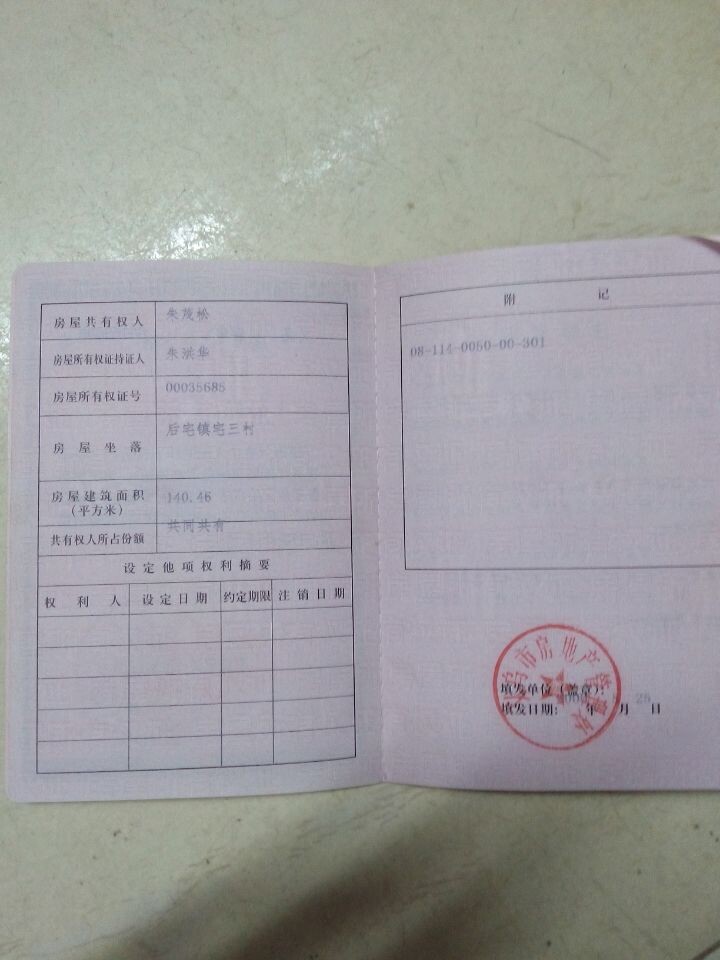 房屋共有权人 朱茂松
房屋所有权证持证人 朱洪华
房屋所有权证号 00035685
房屋坐落 后宅镇宅三村
房屋建筑面积
(平方米) 140.46
共有权人所占份额 共同共有
设定他项权利摘要
权利人 设定日期 约定期限 注销日期
附记
08-114-0050-00-301
乌市房地产管
填发单位(盖章):
填发日期: 年 月 28 日